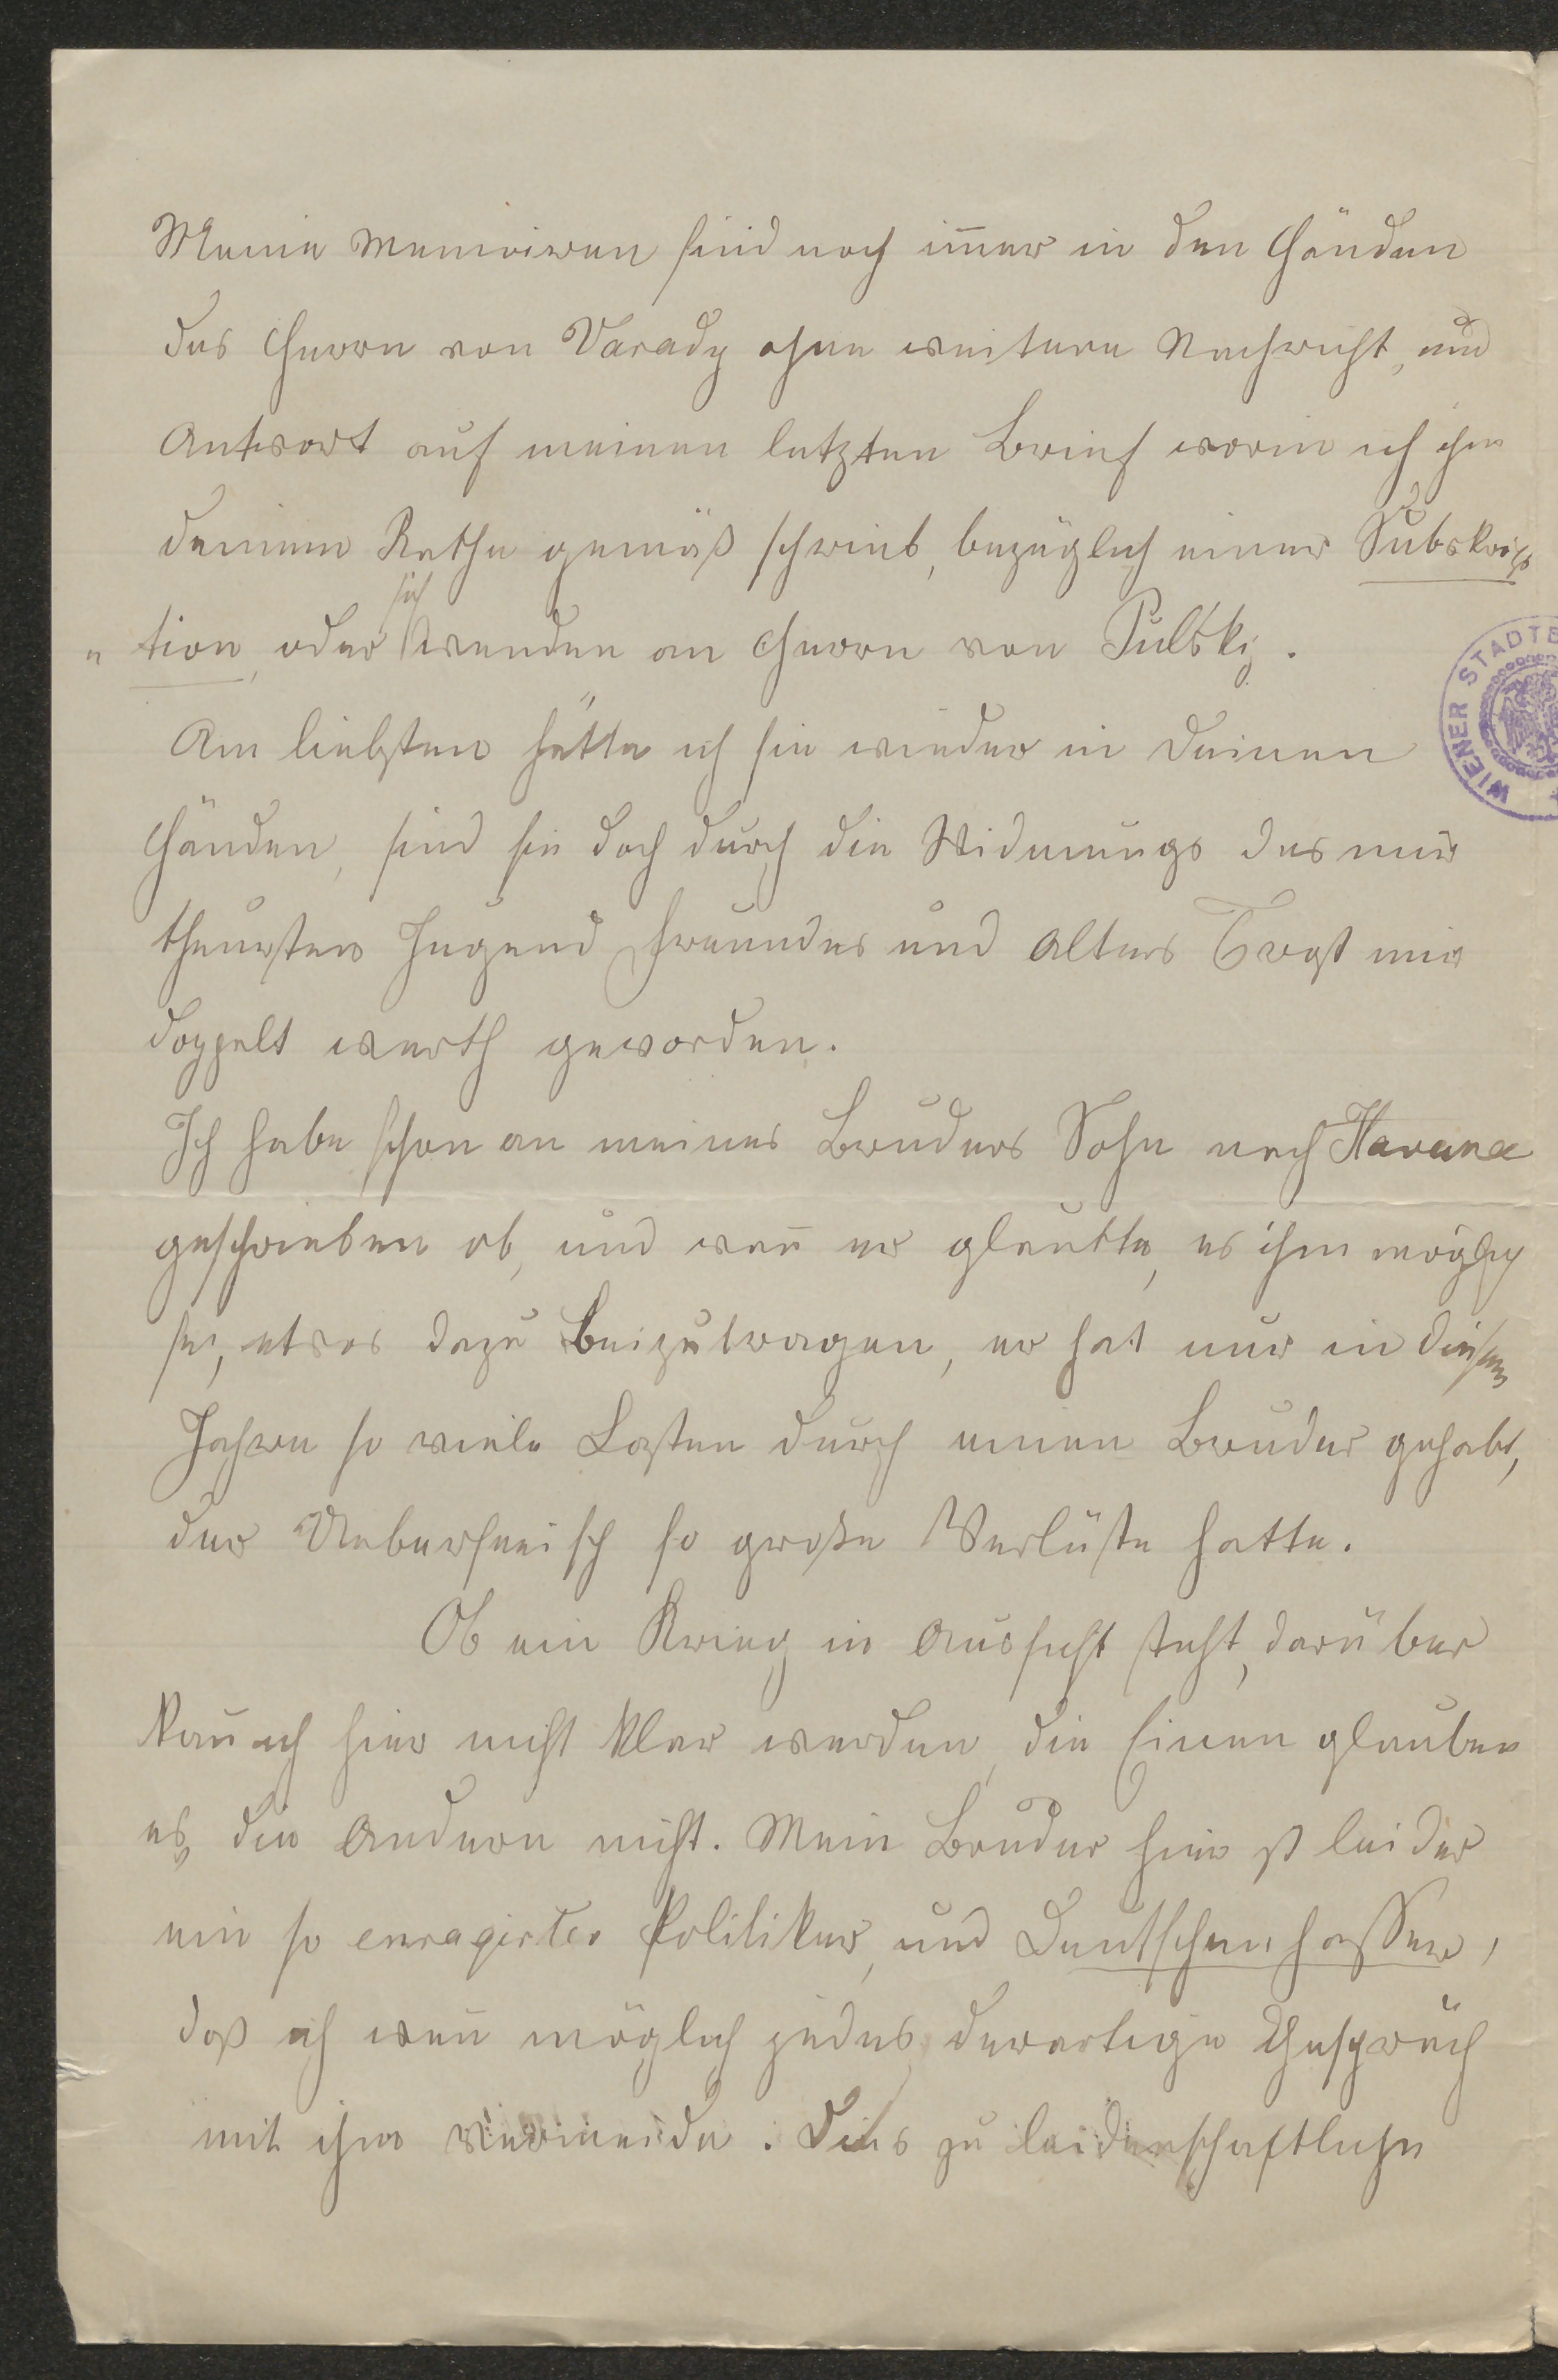 Meine Memoiren sind noch im̄er in den Händen
des Herrn von Varady ohne weitere Nachricht, und
Antwort auf meinen letzten Brief worin ich ihm
deinem Rathe gemäß schrieb, bezüglich einer Subskrip
"tion, oder sich wenden an Herrn von Pulski.
Am liebsten hätte ich sie wieder in Deinen
Händen, sind sie doch durch die Widmung des mir
theuersten Jugend Freundes und Alters Trost mir
doppelt werth geworden.
Ich habe schon an meines Bruders Sohn nach Havana
geschrieben ob, und wen̄ er glaubte, es ihm möglich
sei, etwas dazu beizutragen, er hat nur in diesem
Jahre so viele Lasten durch einen Bruder gehabt,
der Ueberseeisch so große Verluste hatte.
Ob ein Krieg in Aussicht steht, darüber
kan̄ ich hier nicht klar werden, die Einen glauben
es, die Andern nicht. Mein Bruder hier ist leider
ein so enragirter Politiker, und Deutschenhasser,
daß ich wen̄ möglich jedes derartige Gespräch
mit ihm vermeide. Dies zu leidenschaftliche
WIENER STADTB